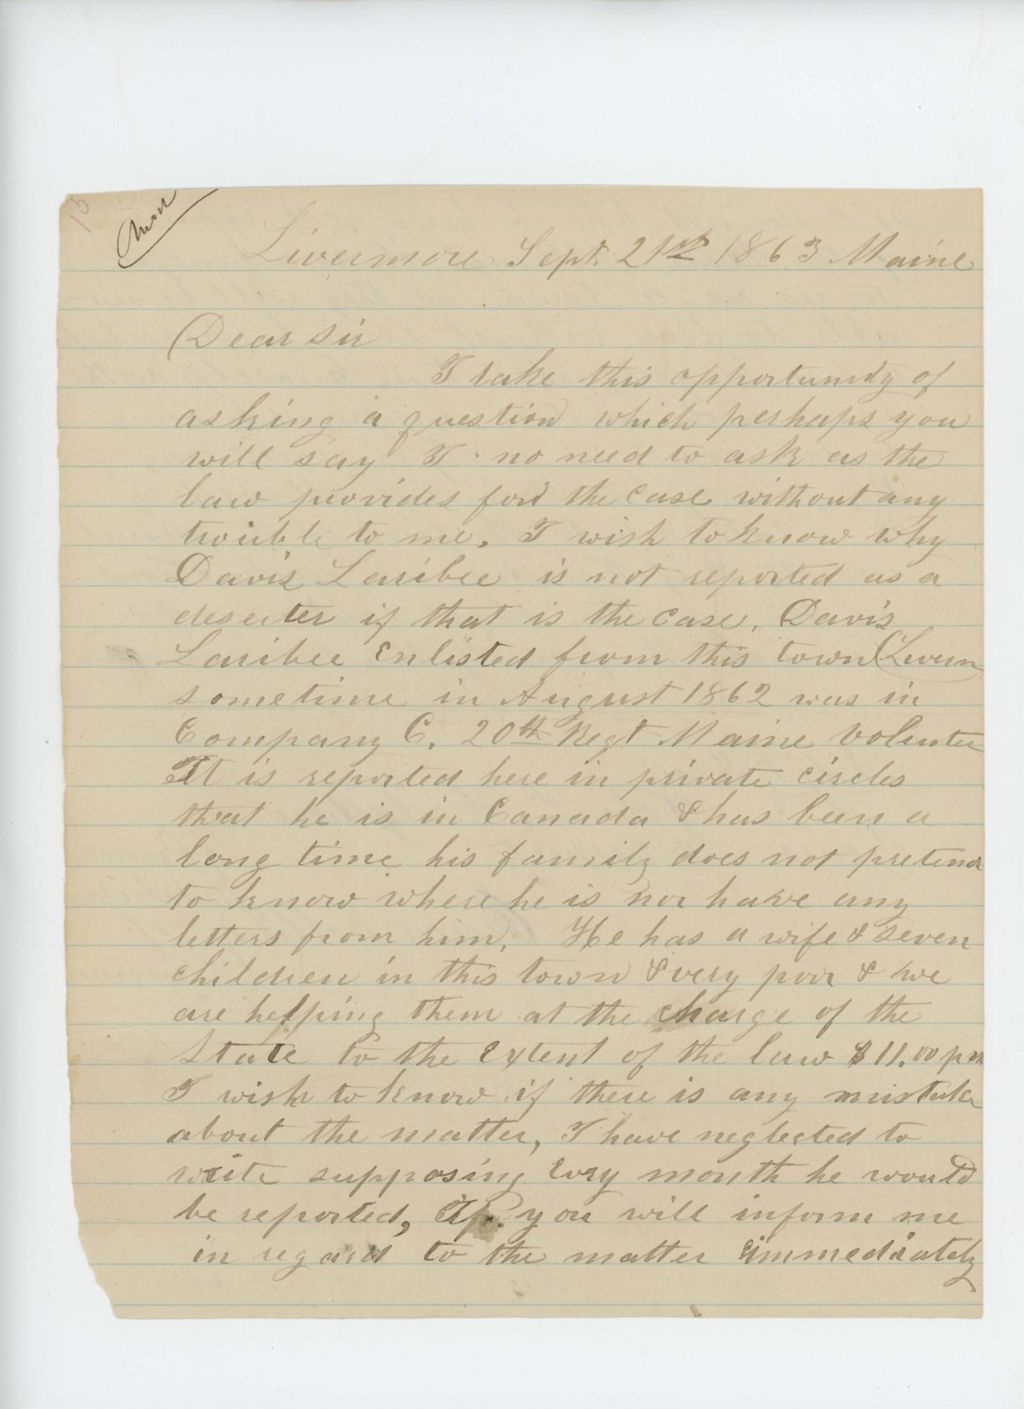 Livermore Sept. 21st 1863 Maine
Dear Sir
I take this opportunity of
asking a question which perhaps you
will say I no need to ask as the
law provides for the case without any
trouble to me. I wish to know why
Davis Laribee is not reported as a
deserter if that is the case. Davis
Laribee Enlisted from this town (Liverm
sometime in August 1862 was in
Company C. 20th Regt Maine Volunte
It is reported here in private circles
that he is in Canada & has been a
long time his family does not pretend
to know where he is nor have any
letters from him. He has a wife & seven
children in this town & very poor & we
are helping them at the charge of the
State to the Extent of the law $11.00 pr m
I wish to know if there is any mistake
about the matter, I have neglected to
write supposing Every month he would
be reported, If you will inform me
in regard to the matter immediately